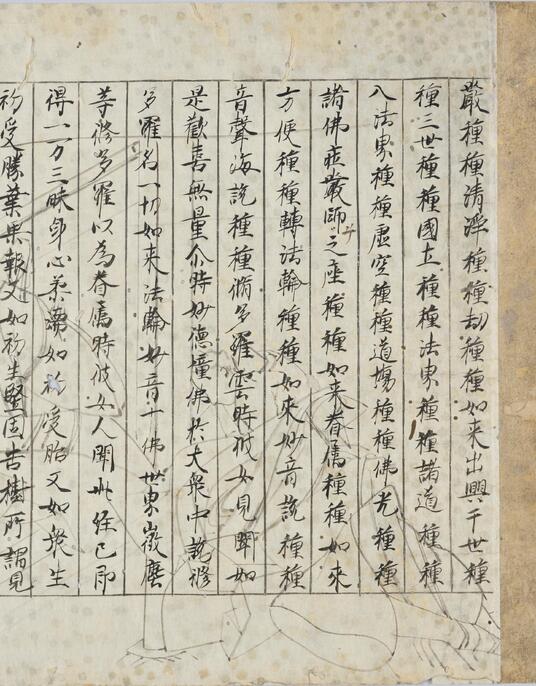 嚴種種清淨種種劫種種如來出興于世種
種三世種種國土種種法界種種諸道種種
入法界種種虛空種種道場種種佛光種種
諸佛莊嚴師子之座種種如來眷屬種種如來
方便種種轉法輪種種如來妙音說種種
音聲海說種種脩多羅雲時彼女見聞如
是歡喜無量尒時妙德幢佛於大衆中說脩
多羅名一切如來法輪妙音十佛世界微塵
等脩多羅以為眷屬時彼女人聞此經已即
得一万三昧身心柔濡如初受胎又如衆生
初受勝葉果報又如初生堅固吉樹所謂見